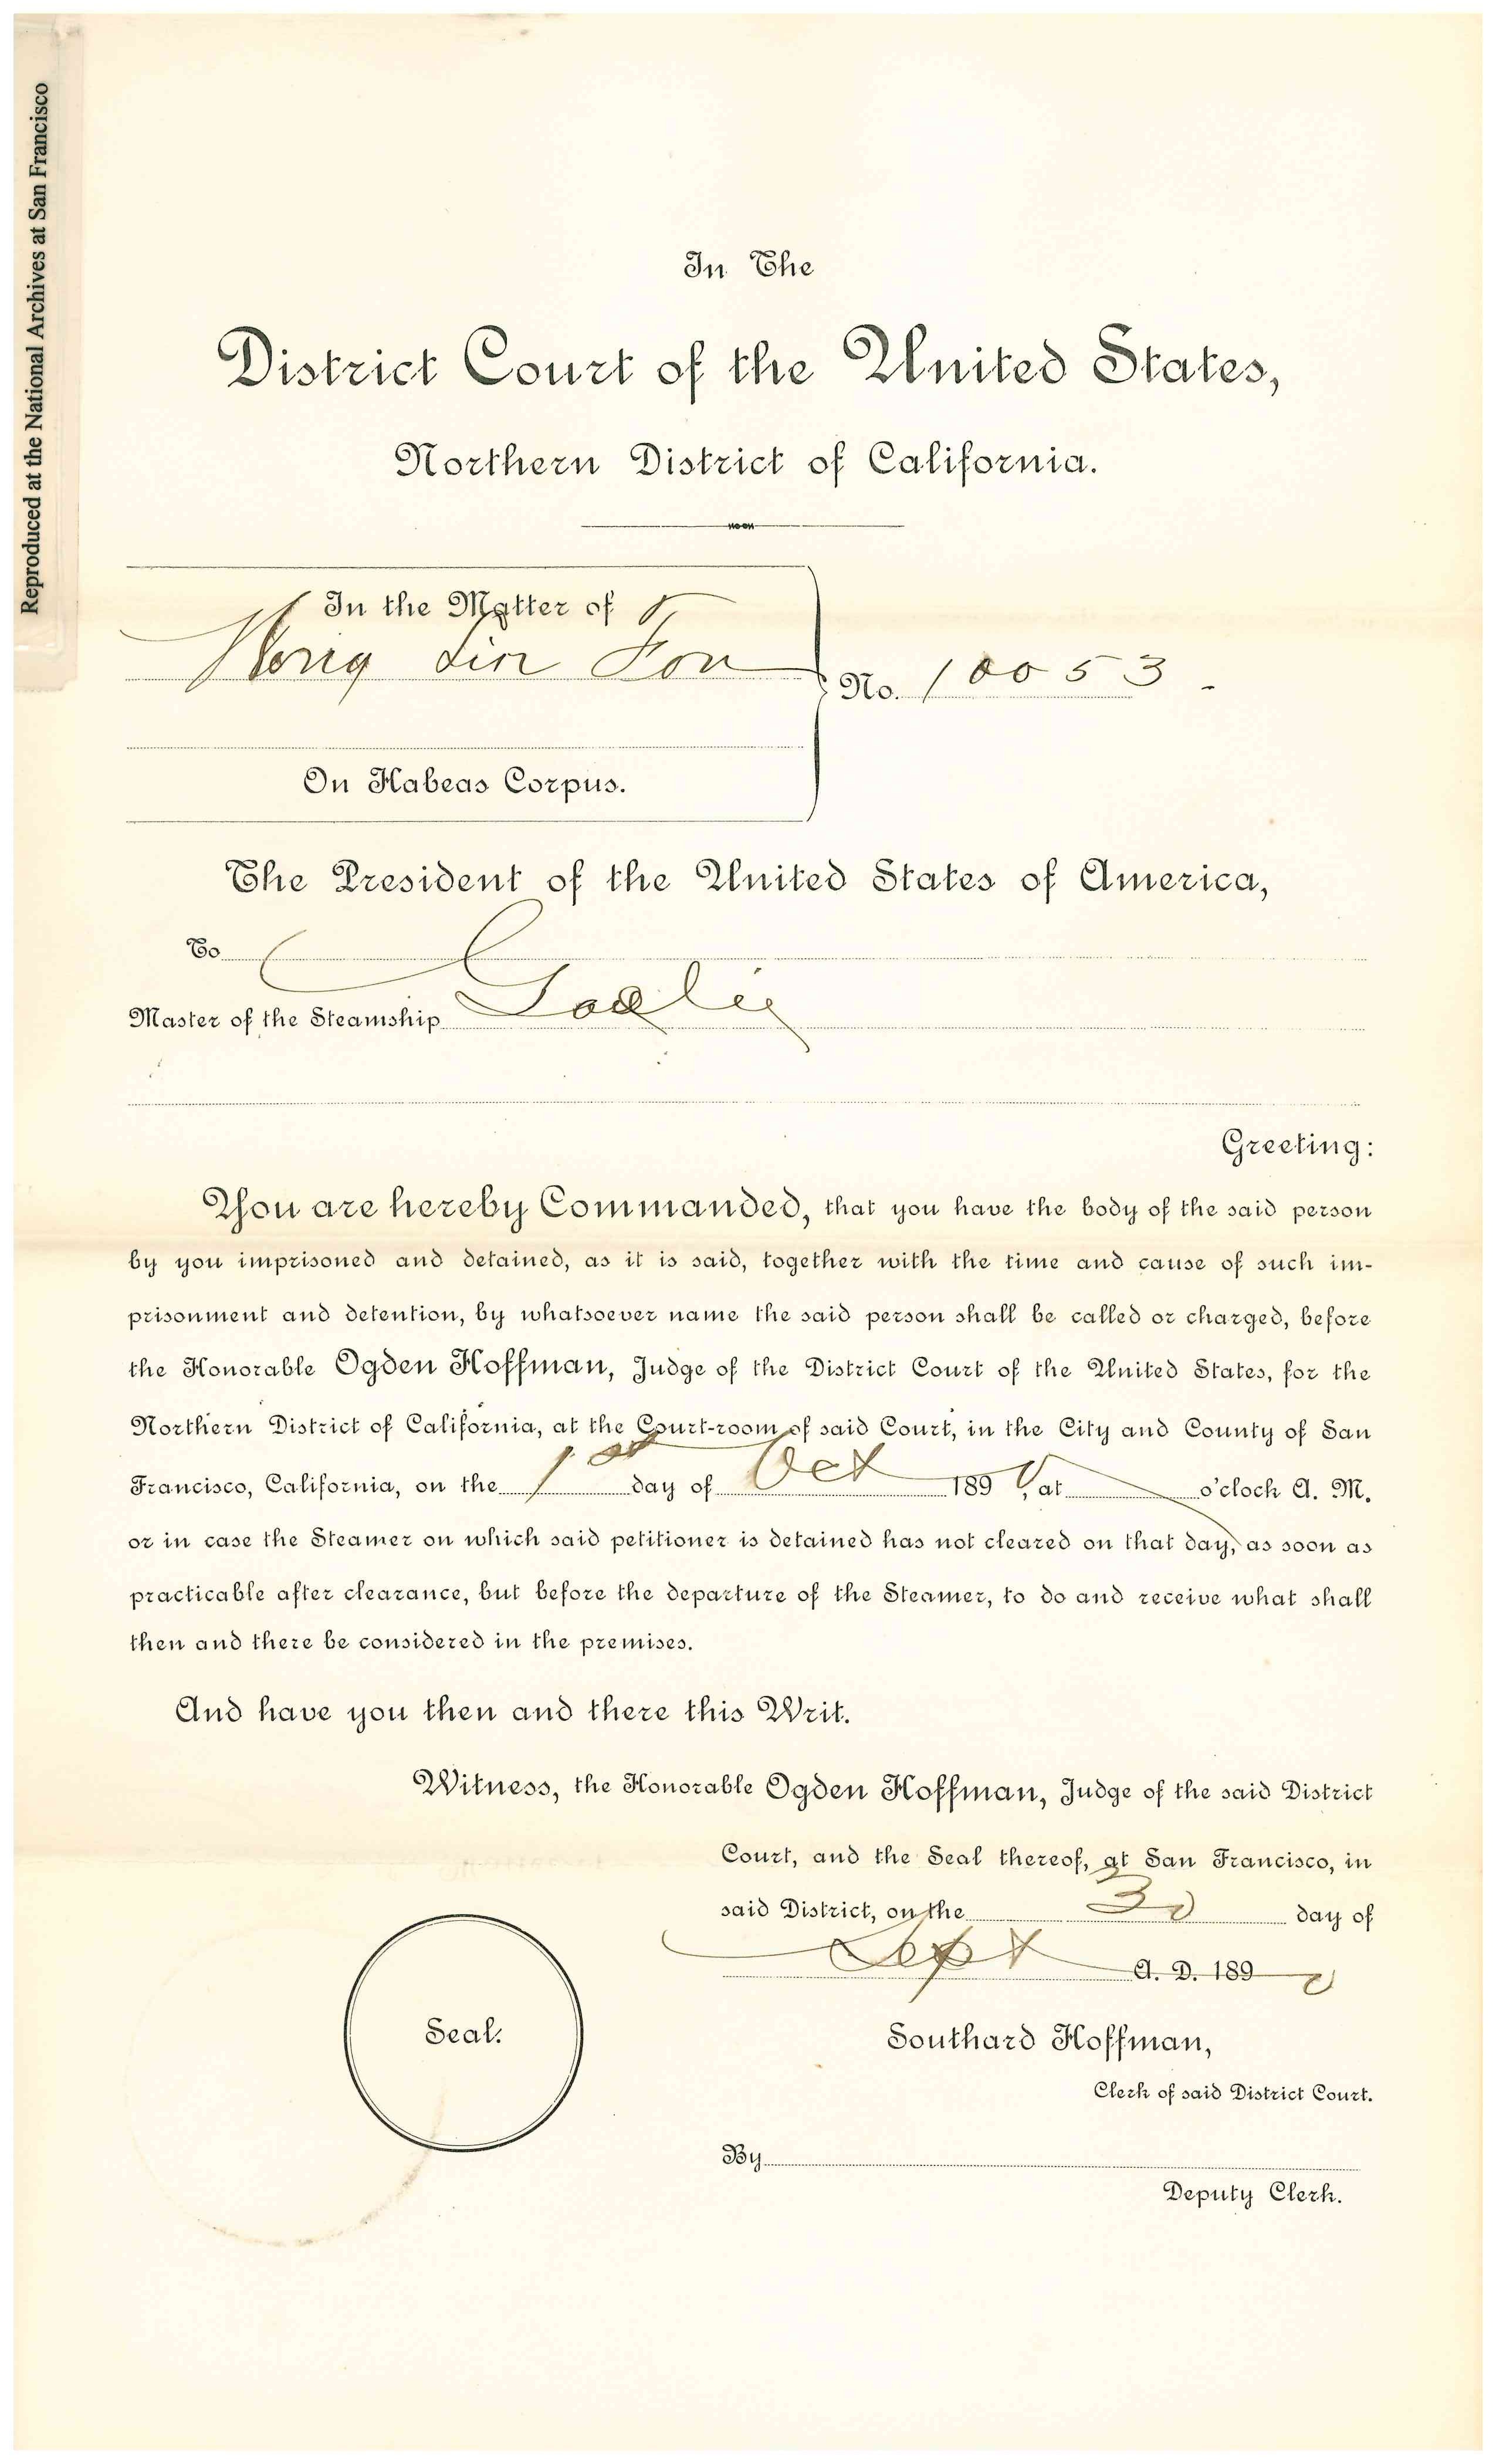 Reproduced at the National Archives at San Francisco
In The
District Court of the United States,
Northern District of California.
In the Matter of
Wong
No. 10053.
On Habeas Corpus.
The President of the United States of America,
To
Master of the Steamship Gaelic
Greeting:
You are hereby Commanded, that you have the body of the said person
by you imprisoned and detained, as it is said, together with the time and cause of such im-
prisonment and detention, by whatsoever name the said person shall be called or charged, before
the Honorable Ogden Hoffman, Judge of the District Court of the United States, for the
Northern District of California, at the Court-room of said Court, in the City and County of San
Francisco, California, on the 1st day of Oct 189 , at o'clock A. M.
or in case the Steamer on which said petitioner is detained has not cleared on that day, as soon as
practicable after clearance, but before the departure of the Steamer, to do and receive what shall
then and there be considered in the premises.
And have you then and there this Writ.
Witness, the Honorable Ogden Hoffman, Judge of the said District
Court, and the Seal thereof, at San Francisco, in
said District, on the 30 day of
Sept A. D. 1890
Seal.
Southard Hoffman,
Clerk of said District Court.
By
Deputy Clerk.